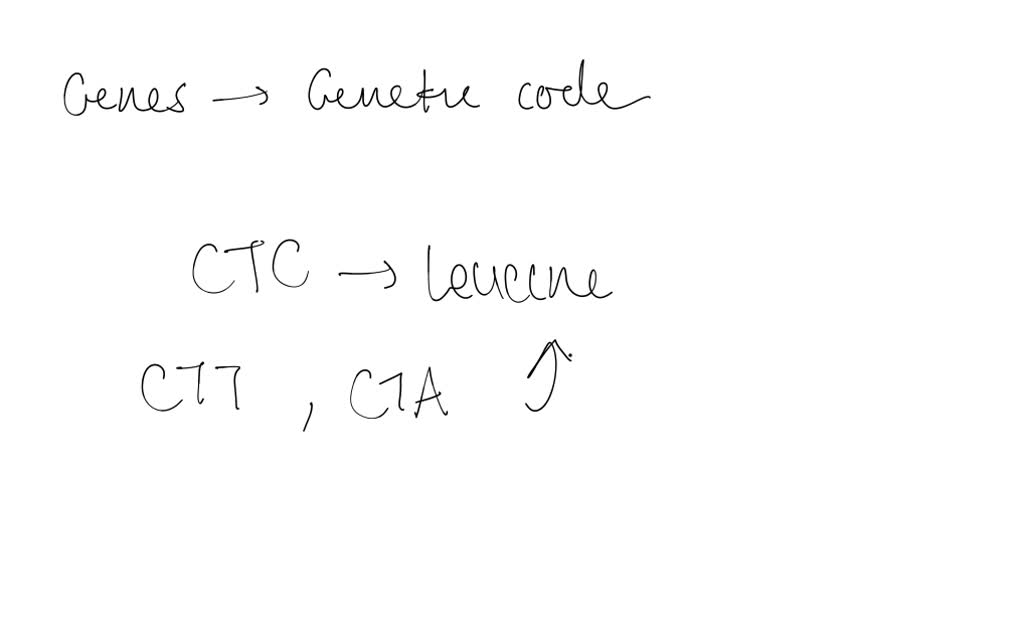 Genes → Genetic code
CTC → Leucine
CTT , CTA ↑